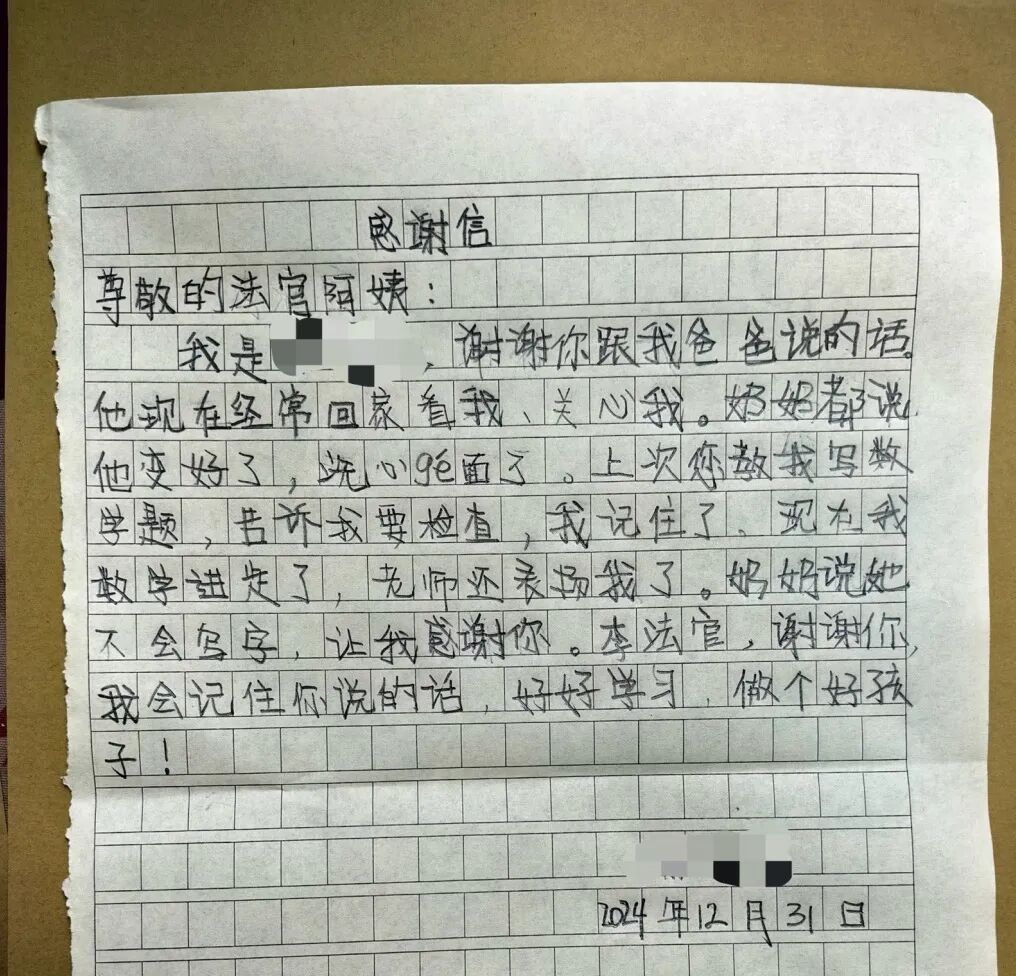 感谢信
尊敬的法官阿姨：
我是，谢谢你跟我爸爸说的话。
他现在经常回家看我、关心我。奶奶都说
他变好了，洗心ge面了。上次您教我写数
学题，告诉我要检查，我记住了、现在我
数学进走了，老师还表扬我了。奶奶说她
不会写字，让我感谢你。李法官，谢谢你，
我会记住你说的话，好好学习，做个好孩
子！
2024年12月31日